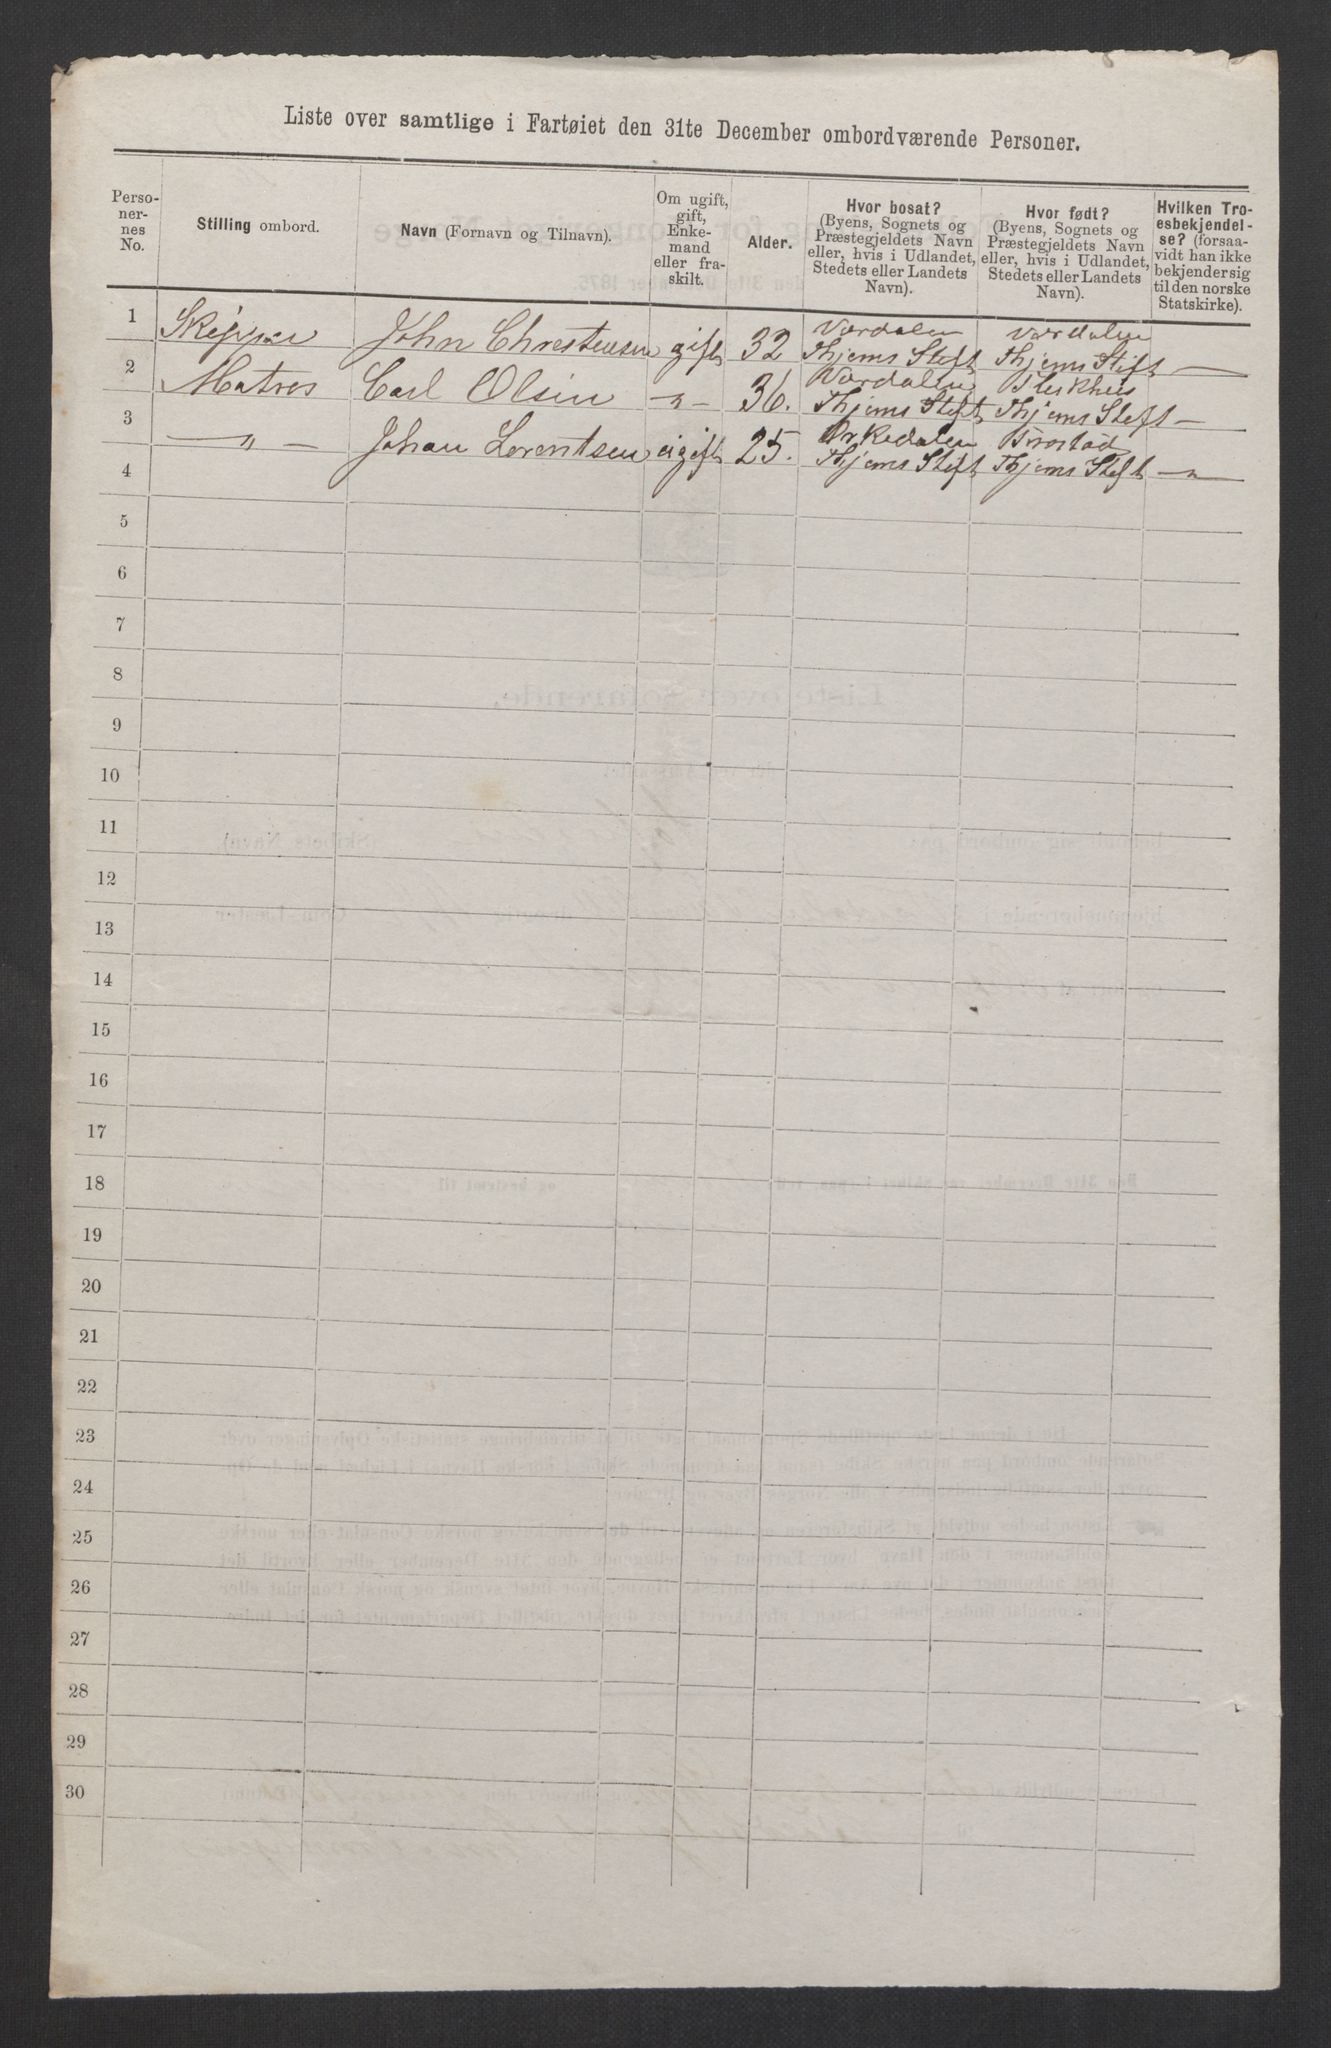 Liste over samtlige i Fartøiet den 31te December ombordværende Personer.
Perso-
ner-
nes
No.
Stilling ombord.
Navn (Fornavn og Tilnavn).
Om ugift,
gift,
Enke-
mand
eller fra-
skilt.
Alder.
Hvor bosat?
(Byens, Sognets og
Præstegjeldets Navn
eller, hvis i Udlandet,
Stedets eller Landets
Navn).
Hvor født?
(Byens, Sognets og
Præstegjeldets Navn
eller, hvis i Udlandet,
Stedets eller Landets
Navn).
Hvilken Tro-
esbekjendel-
se? (forsaa-
vidt han ikke
bekjender sig
til den norske
Statskirke).
1 Skipper John Christensen gift 32 Værdalen Thjems Stift Værdalen Thjems Stift —
2 Matros Carl Olsen — " — 36. Værdalen Thjems Stift Thjems Stift —
3 — " — Johan Lorentsen ugift 25. Orkedalen Thjems Stift Thjems Stift — " —
4
5
6
7
8
9
10
11
12
13
14
15
16
17
18
19
20
21
22
23
24
25
26
27
28
29
30